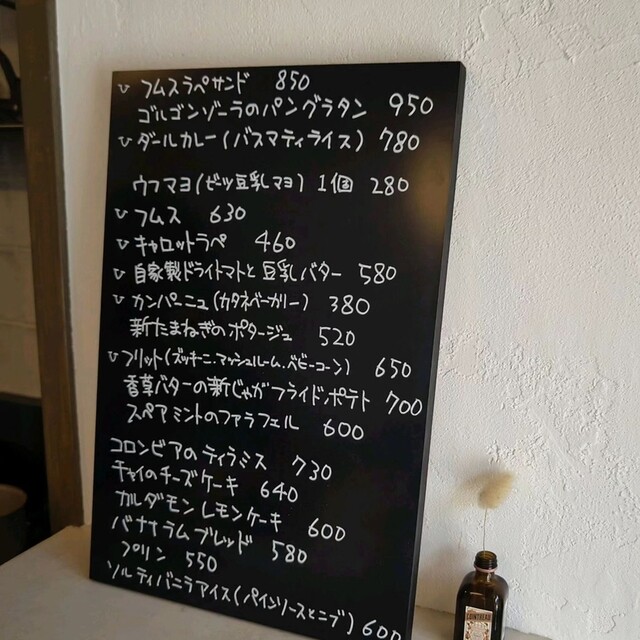 v フムスラペサンド 850
ゴルゴンゾーラのパングラタン 950
v ダールカレー(バスマティライス) 780
ウフマヨ(ビーツ豆乳マヨ) 1個 280
v フムス 630
v キャロットラペ 460
v 自家製ドライトマトと豆乳バター 580
v カンパーニュ(カタネベーカリー) 380
新たまねぎのポタージュ 520
v フリット(ズッキーニ、マッシュルーム、ベビーコーン) 650
香草バターの新じゃがフライドポテト 700
スペアミントのファラフェル 600
コロンビアのティラミス 730
チャイのチーズケーキ 640
カルダモンレモンケーキ 600
バナナラムブレッド 580
プリン 550
ソルティバニラアイス(パインソースとニブ) 600
COINTREAU